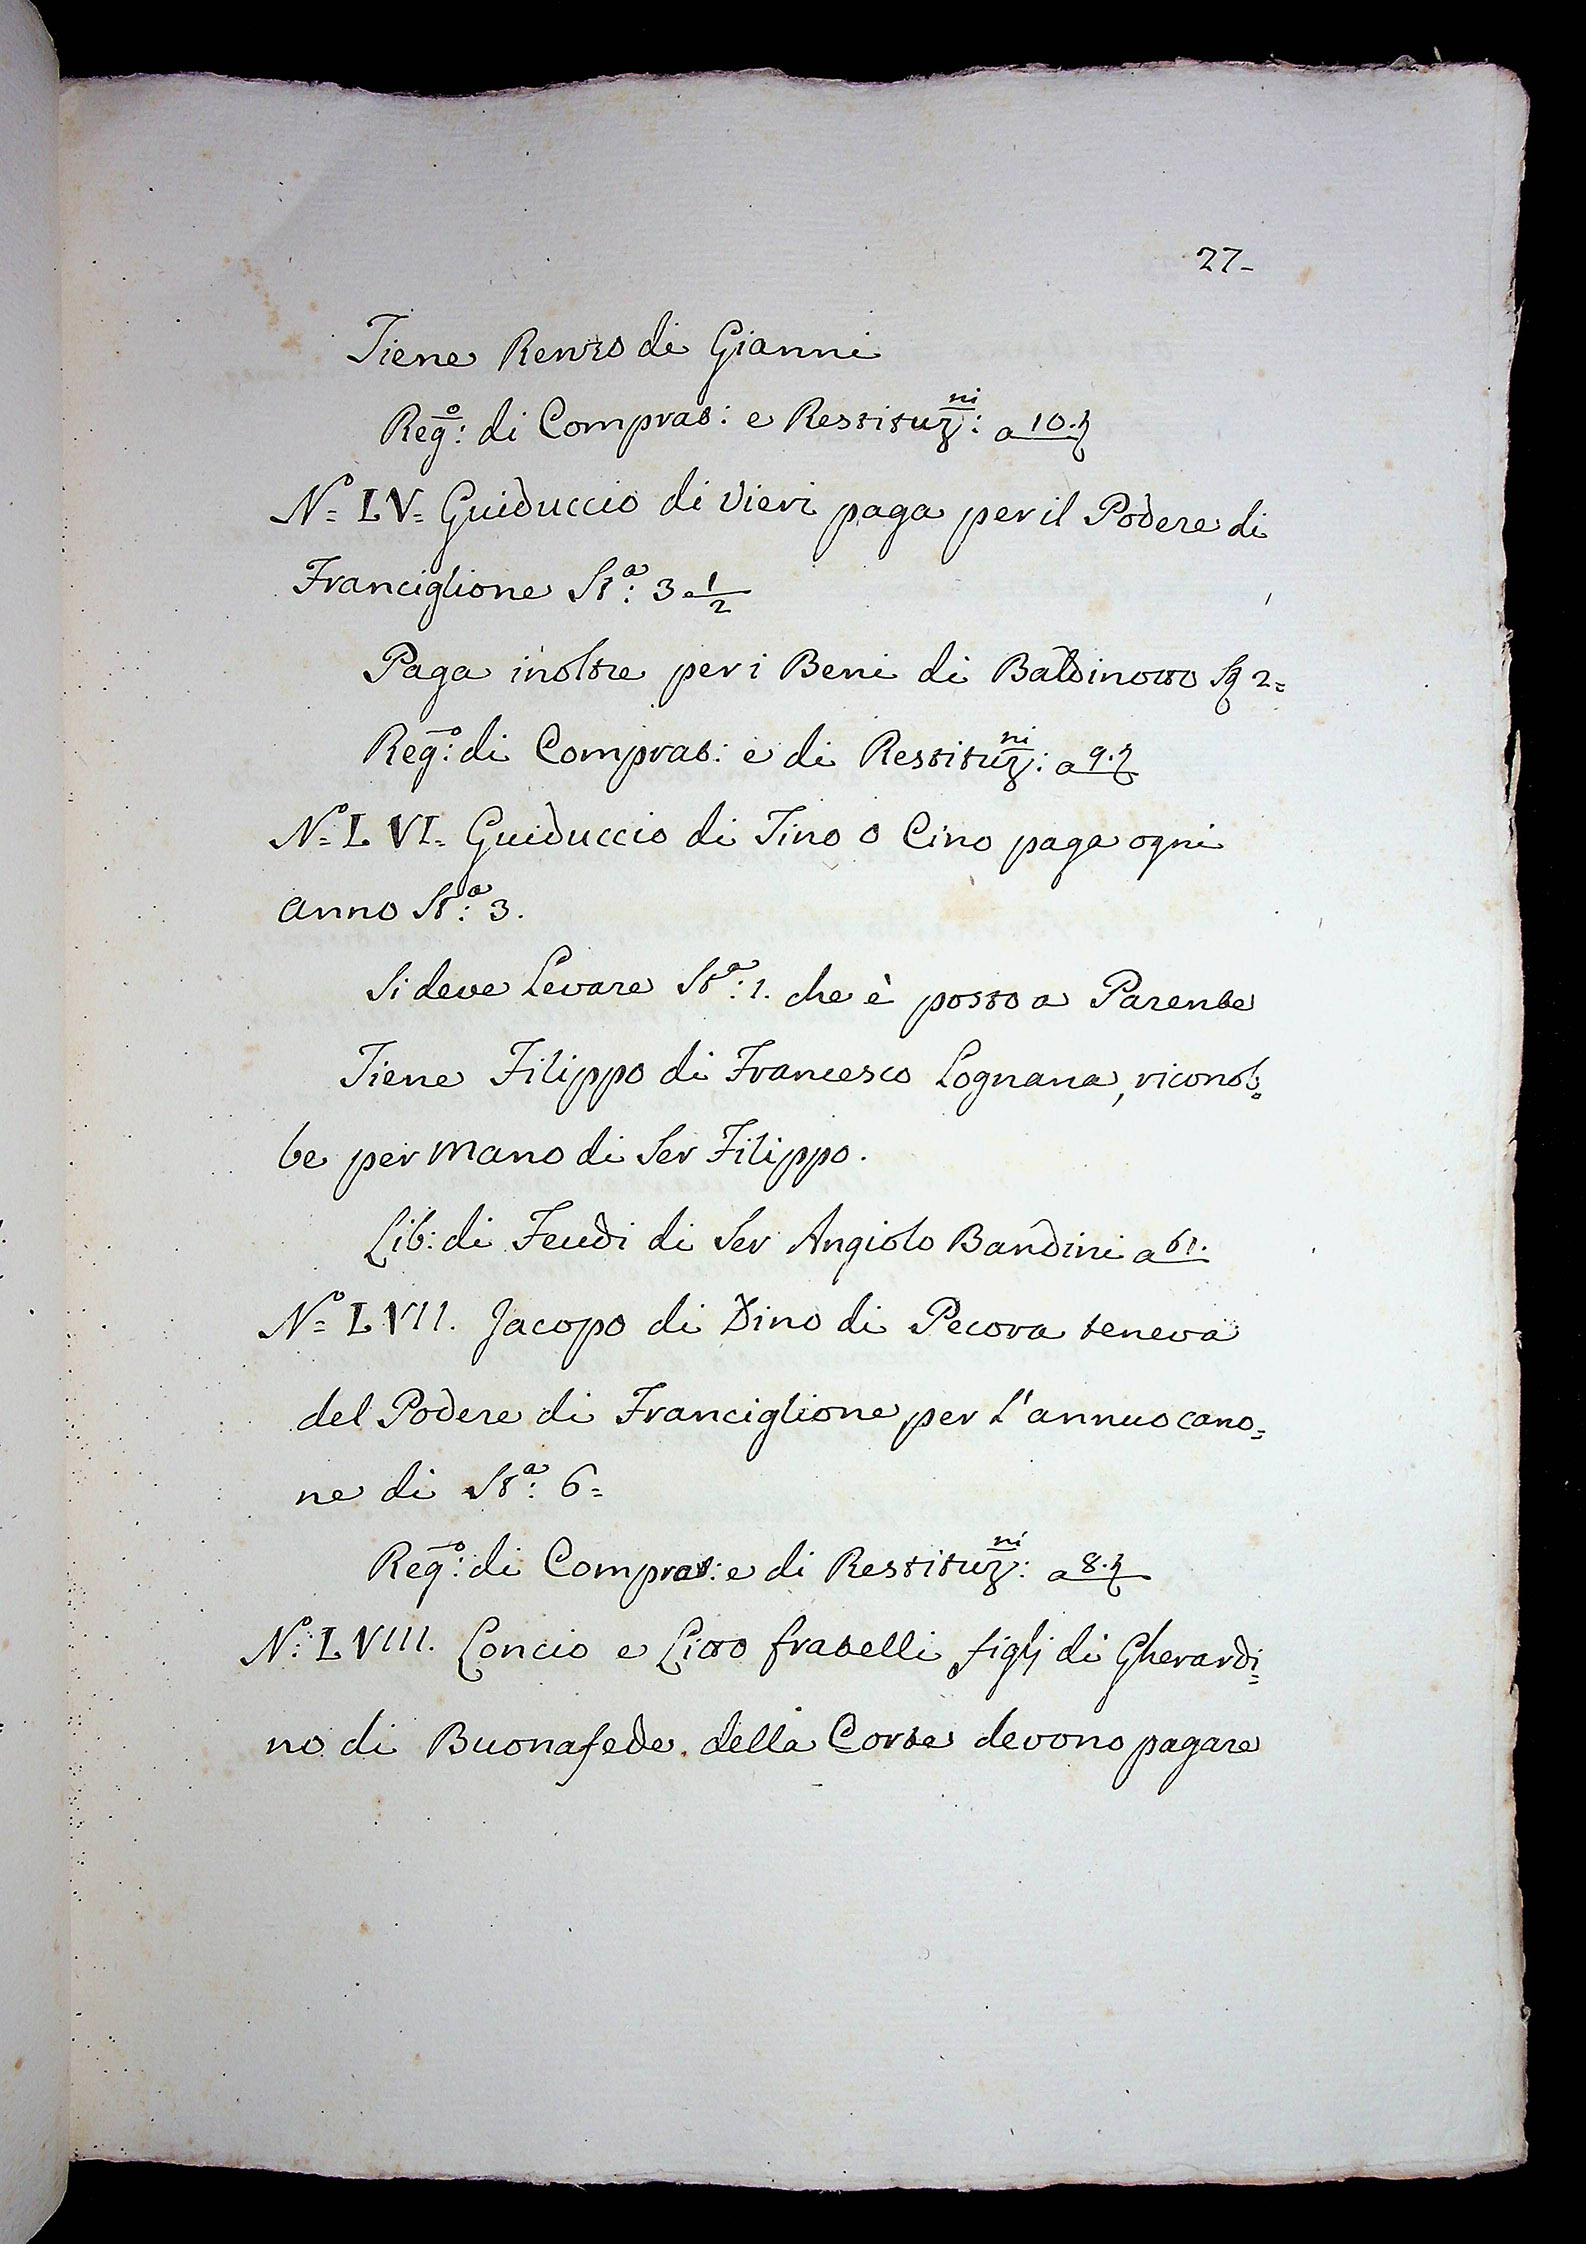 27-
Tiene Renzo di Gianni
Reg:º di Comprat: e Restituz:ni a 10.t
Nº= LV= Guiduccio di Vieri paga per il Podere di
Franciglione St:ª 3 1/2
Paga inoltre per i Beni di Baldinotto Sq 2=
Reg:º di Comprat: e di Restituz:ni a 9.t
Nº= LVI= Guiduccio di Tino o Cino paga ogni
anno St:ª 3.
Si deve Levare St:ª 1. che è posto a Parente
Tiene Filippo di Francesco Lognana, riconob=
be per mano di Ser Filippo.
Lib: di Feudi di Ser Angiolo Bandini a 61.
Nº= LVII. Jacopo di Dino di Pecora teneva
del Podere di Franciglione per l'annuo cano=
ne di St:ª 6=
Reg:º di Comprat: e di Restituz:ni a 8.t
Nº: LVIII. Concio e Litto fratelli figlj di Gherardi=
no di Buonafede della Corte devono pagare